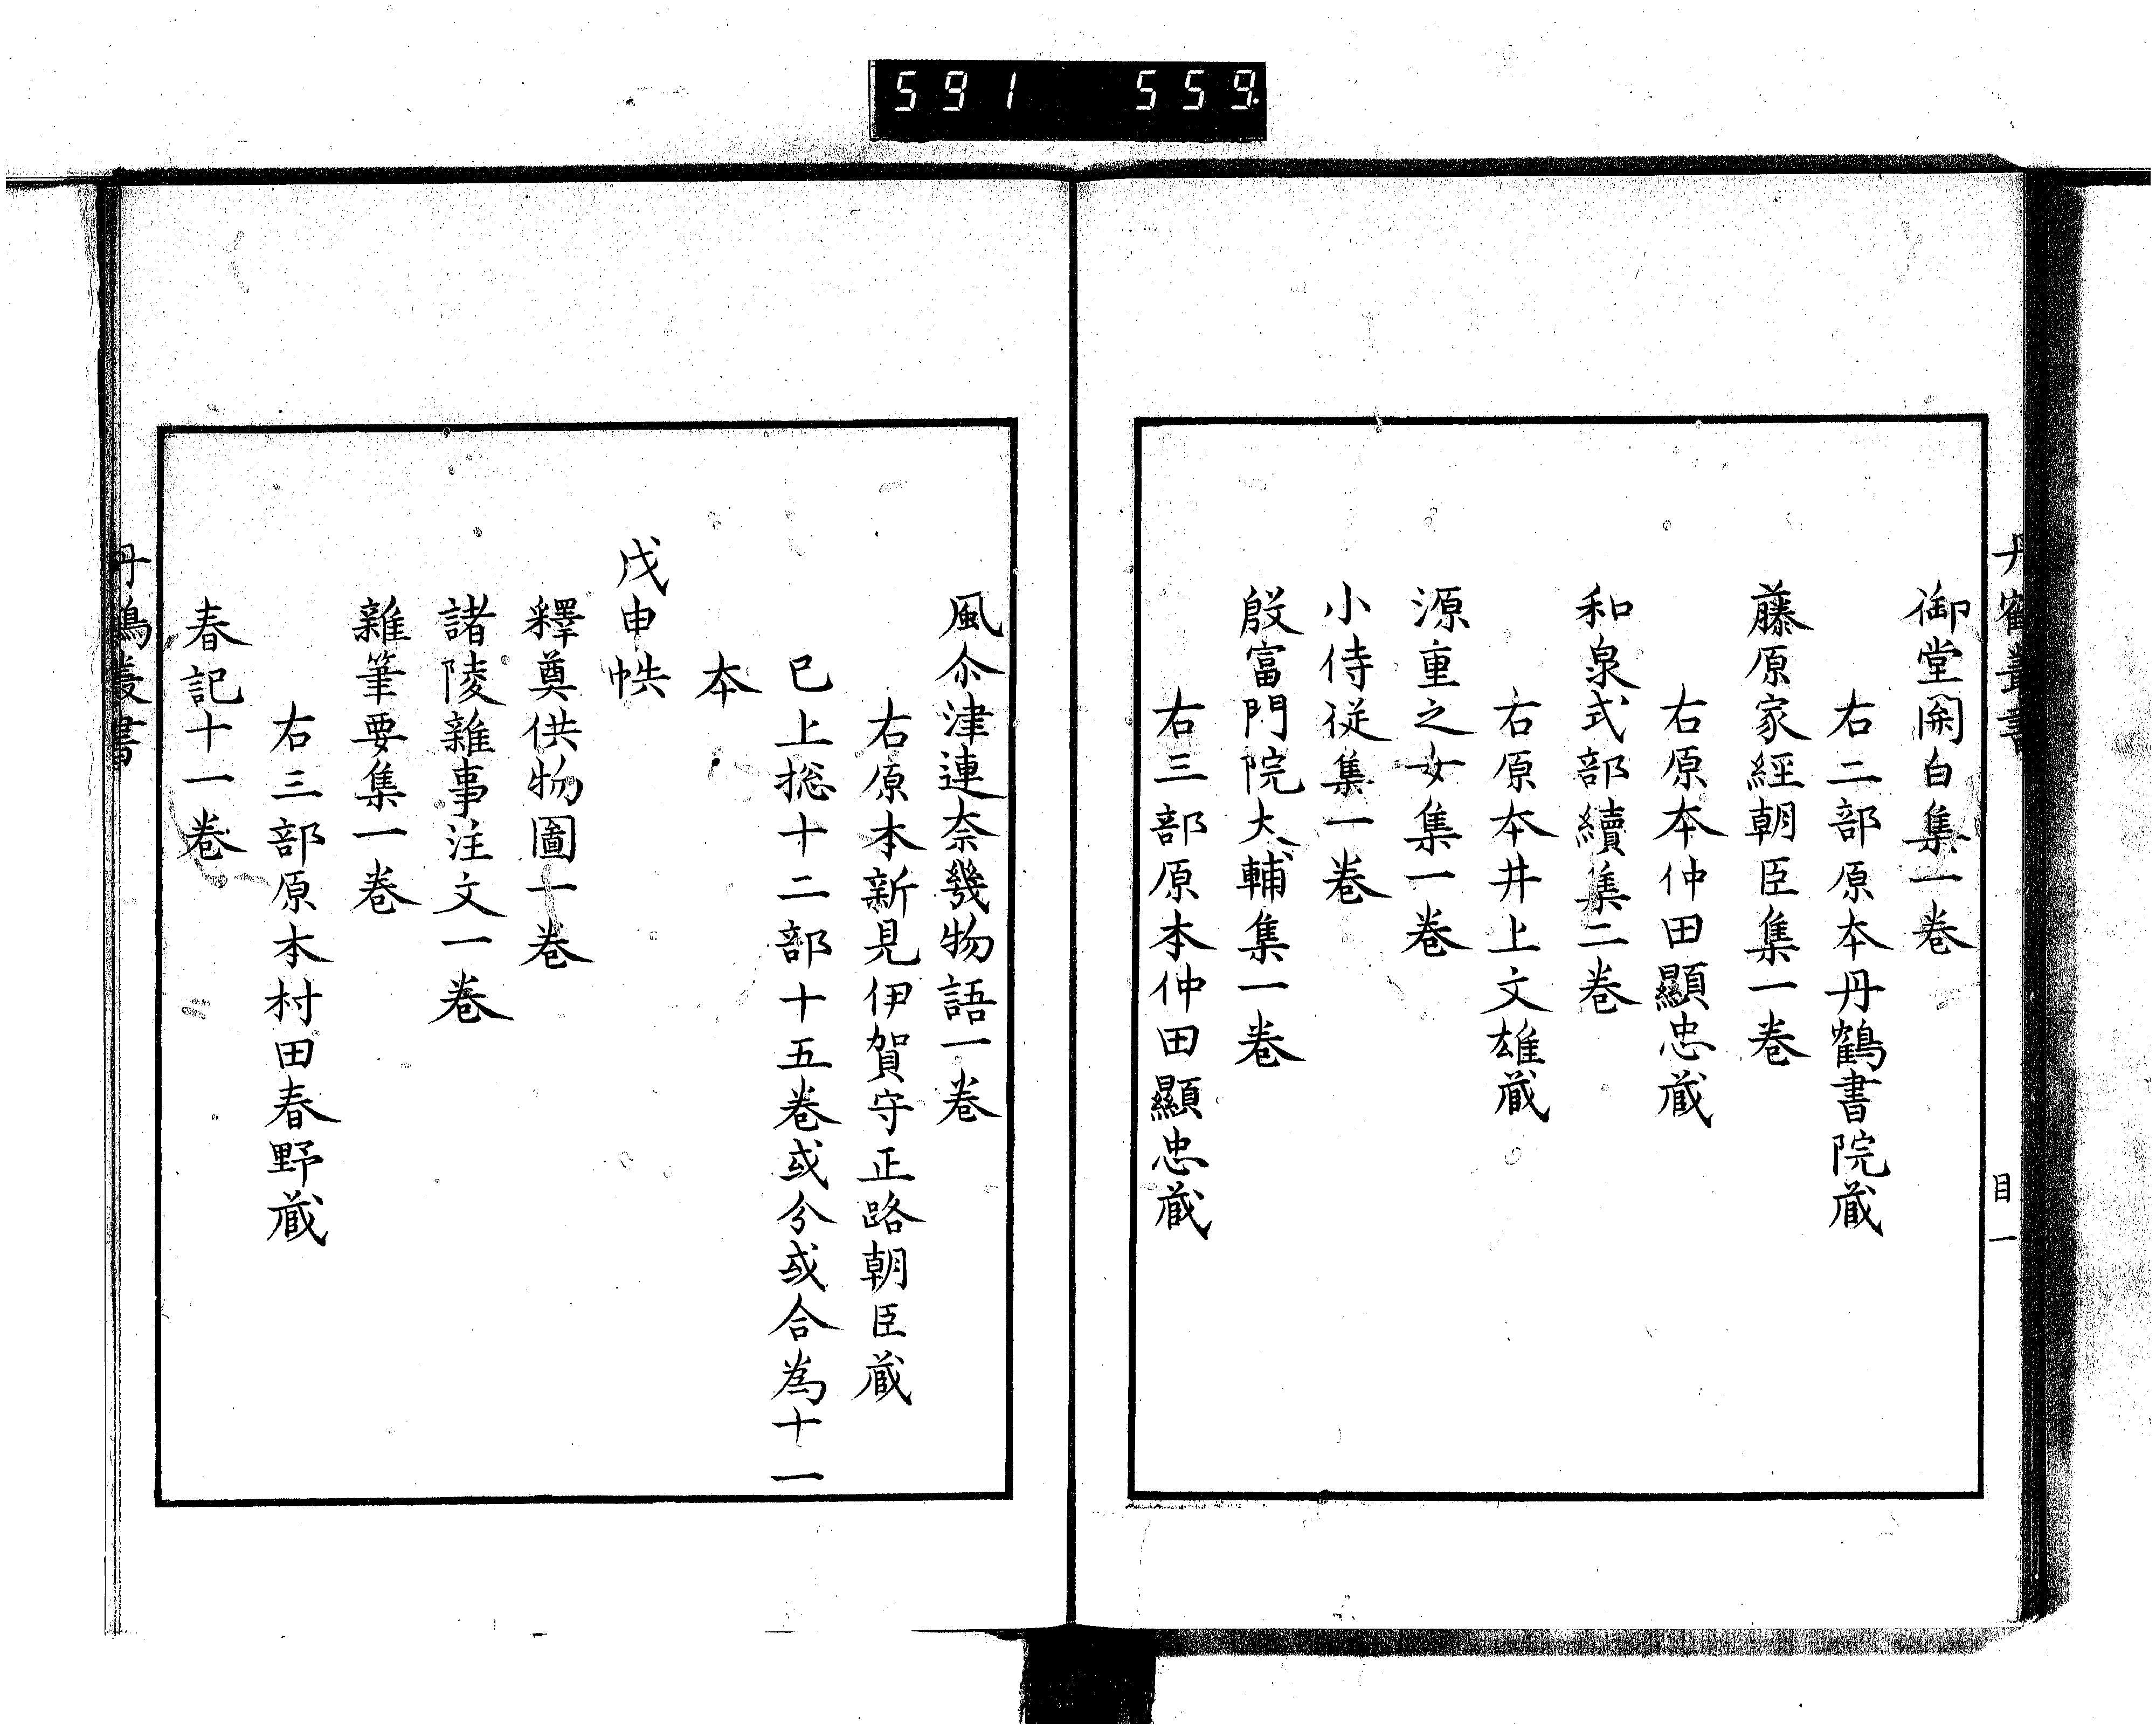 591 559
丹鶴叢書
目一
御堂関白集一卷
右二部原本丹鶴書院蔵
藤原家經朝臣集一卷
右原本仲田顯忠蔵
和泉式部續集二卷
右原本井上文雄蔵
源重之女集一卷
小侍従集一卷
殷富門院大輔集一卷
右三部原本仲田顯忠蔵
風尒津連奈幾物語一卷
右原本新見伊賀守正路朝臣蔵
已上総十二部十五卷或分或合為十一
本
戊申帙
釋奠供物圖一卷
諸陵雜事注文一卷
雜筆要集一卷
右三部原本村田春野蔵
春記十一卷
丹鶴叢書